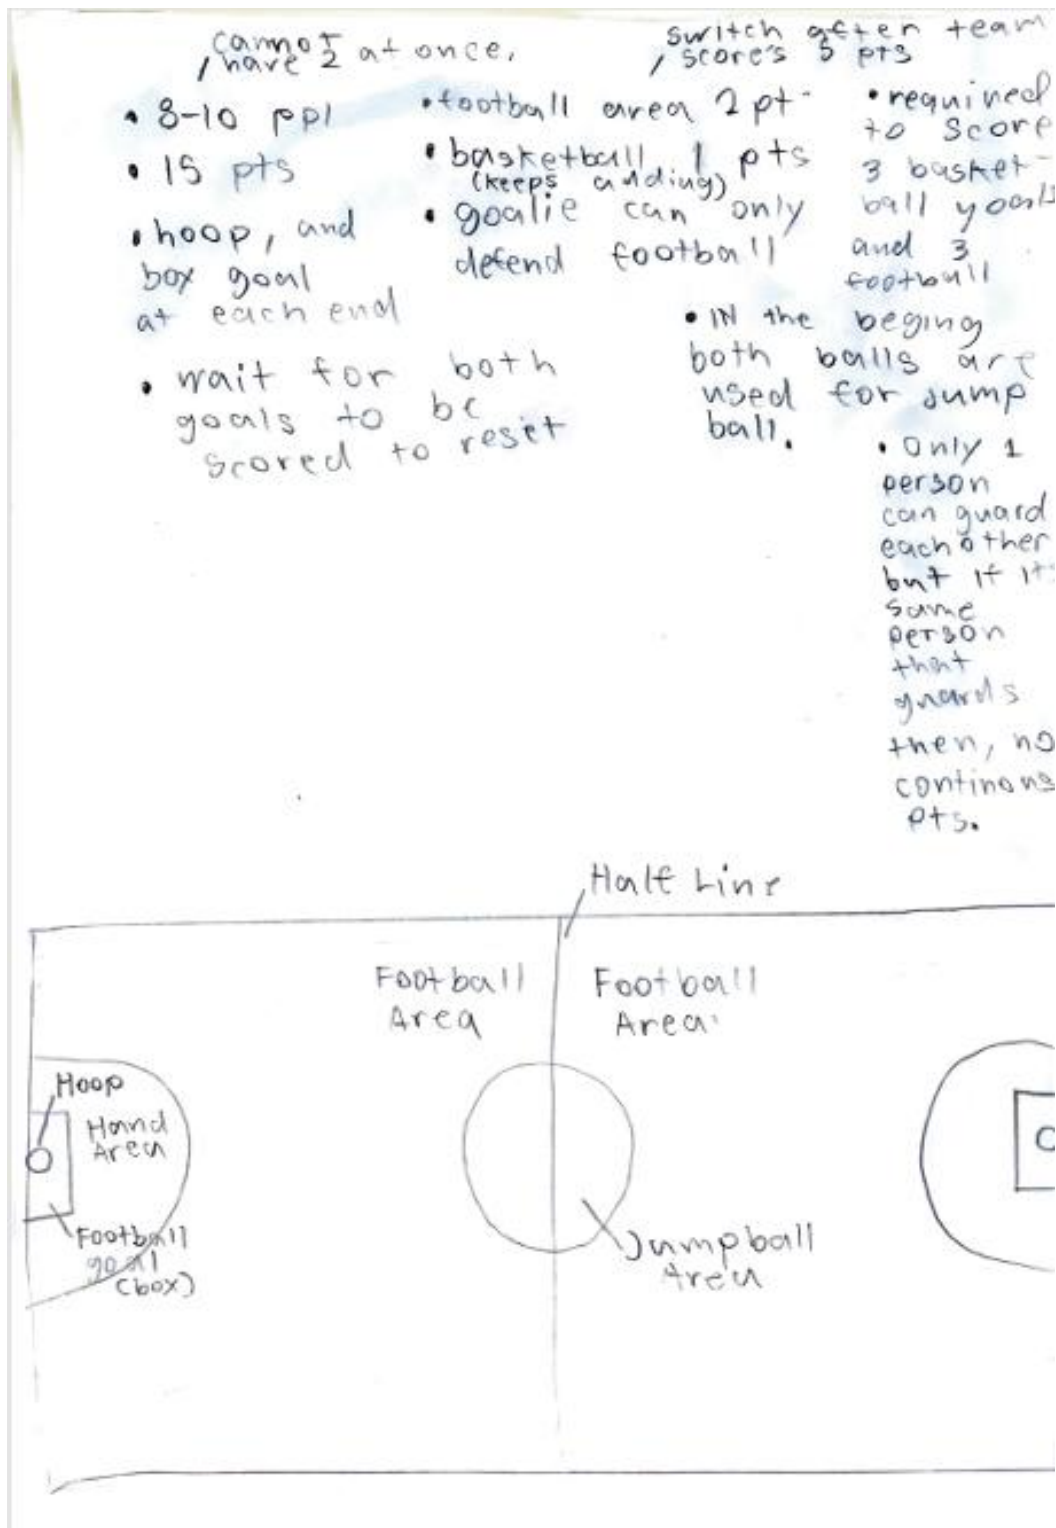 , cannot
have 2 at once.
switch after team
, score's 5 pts
• 8-10 ppl
• 15 pts
• hoop, and
box goal
at each end
• wait for both
goals to be
scored to reset
• football area 2 pt
• basketball 1 pts
(keeps adding)
• goalie can only
defend football
• required
to score
3 basket-
ball goals
and 3
football
• IN the beging
both balls are
used for Jump
ball.
• Only 1
person
can guard
each other
but if it
same
person
that
guards
then, no
continous
pts.
Half Line
Football
Area
Football
Area
Hoop
Hand
Area
Football
goal
(box)
Jumpball
Area